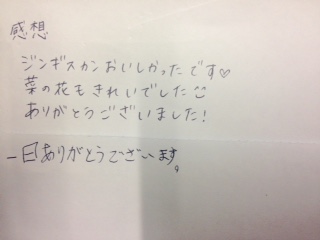 感想
ジンギスカンおいしかったです♡
菜の花もきれいでした☺
ありがとうございました!
一日ありがとうございます。